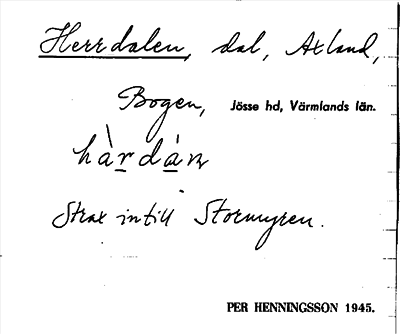 Herrdalen, dal, Axland,
Bogen, Jösse hd, Värmlands län.
Strax intill Stormyren.
PER HENNINGSSON 1945.